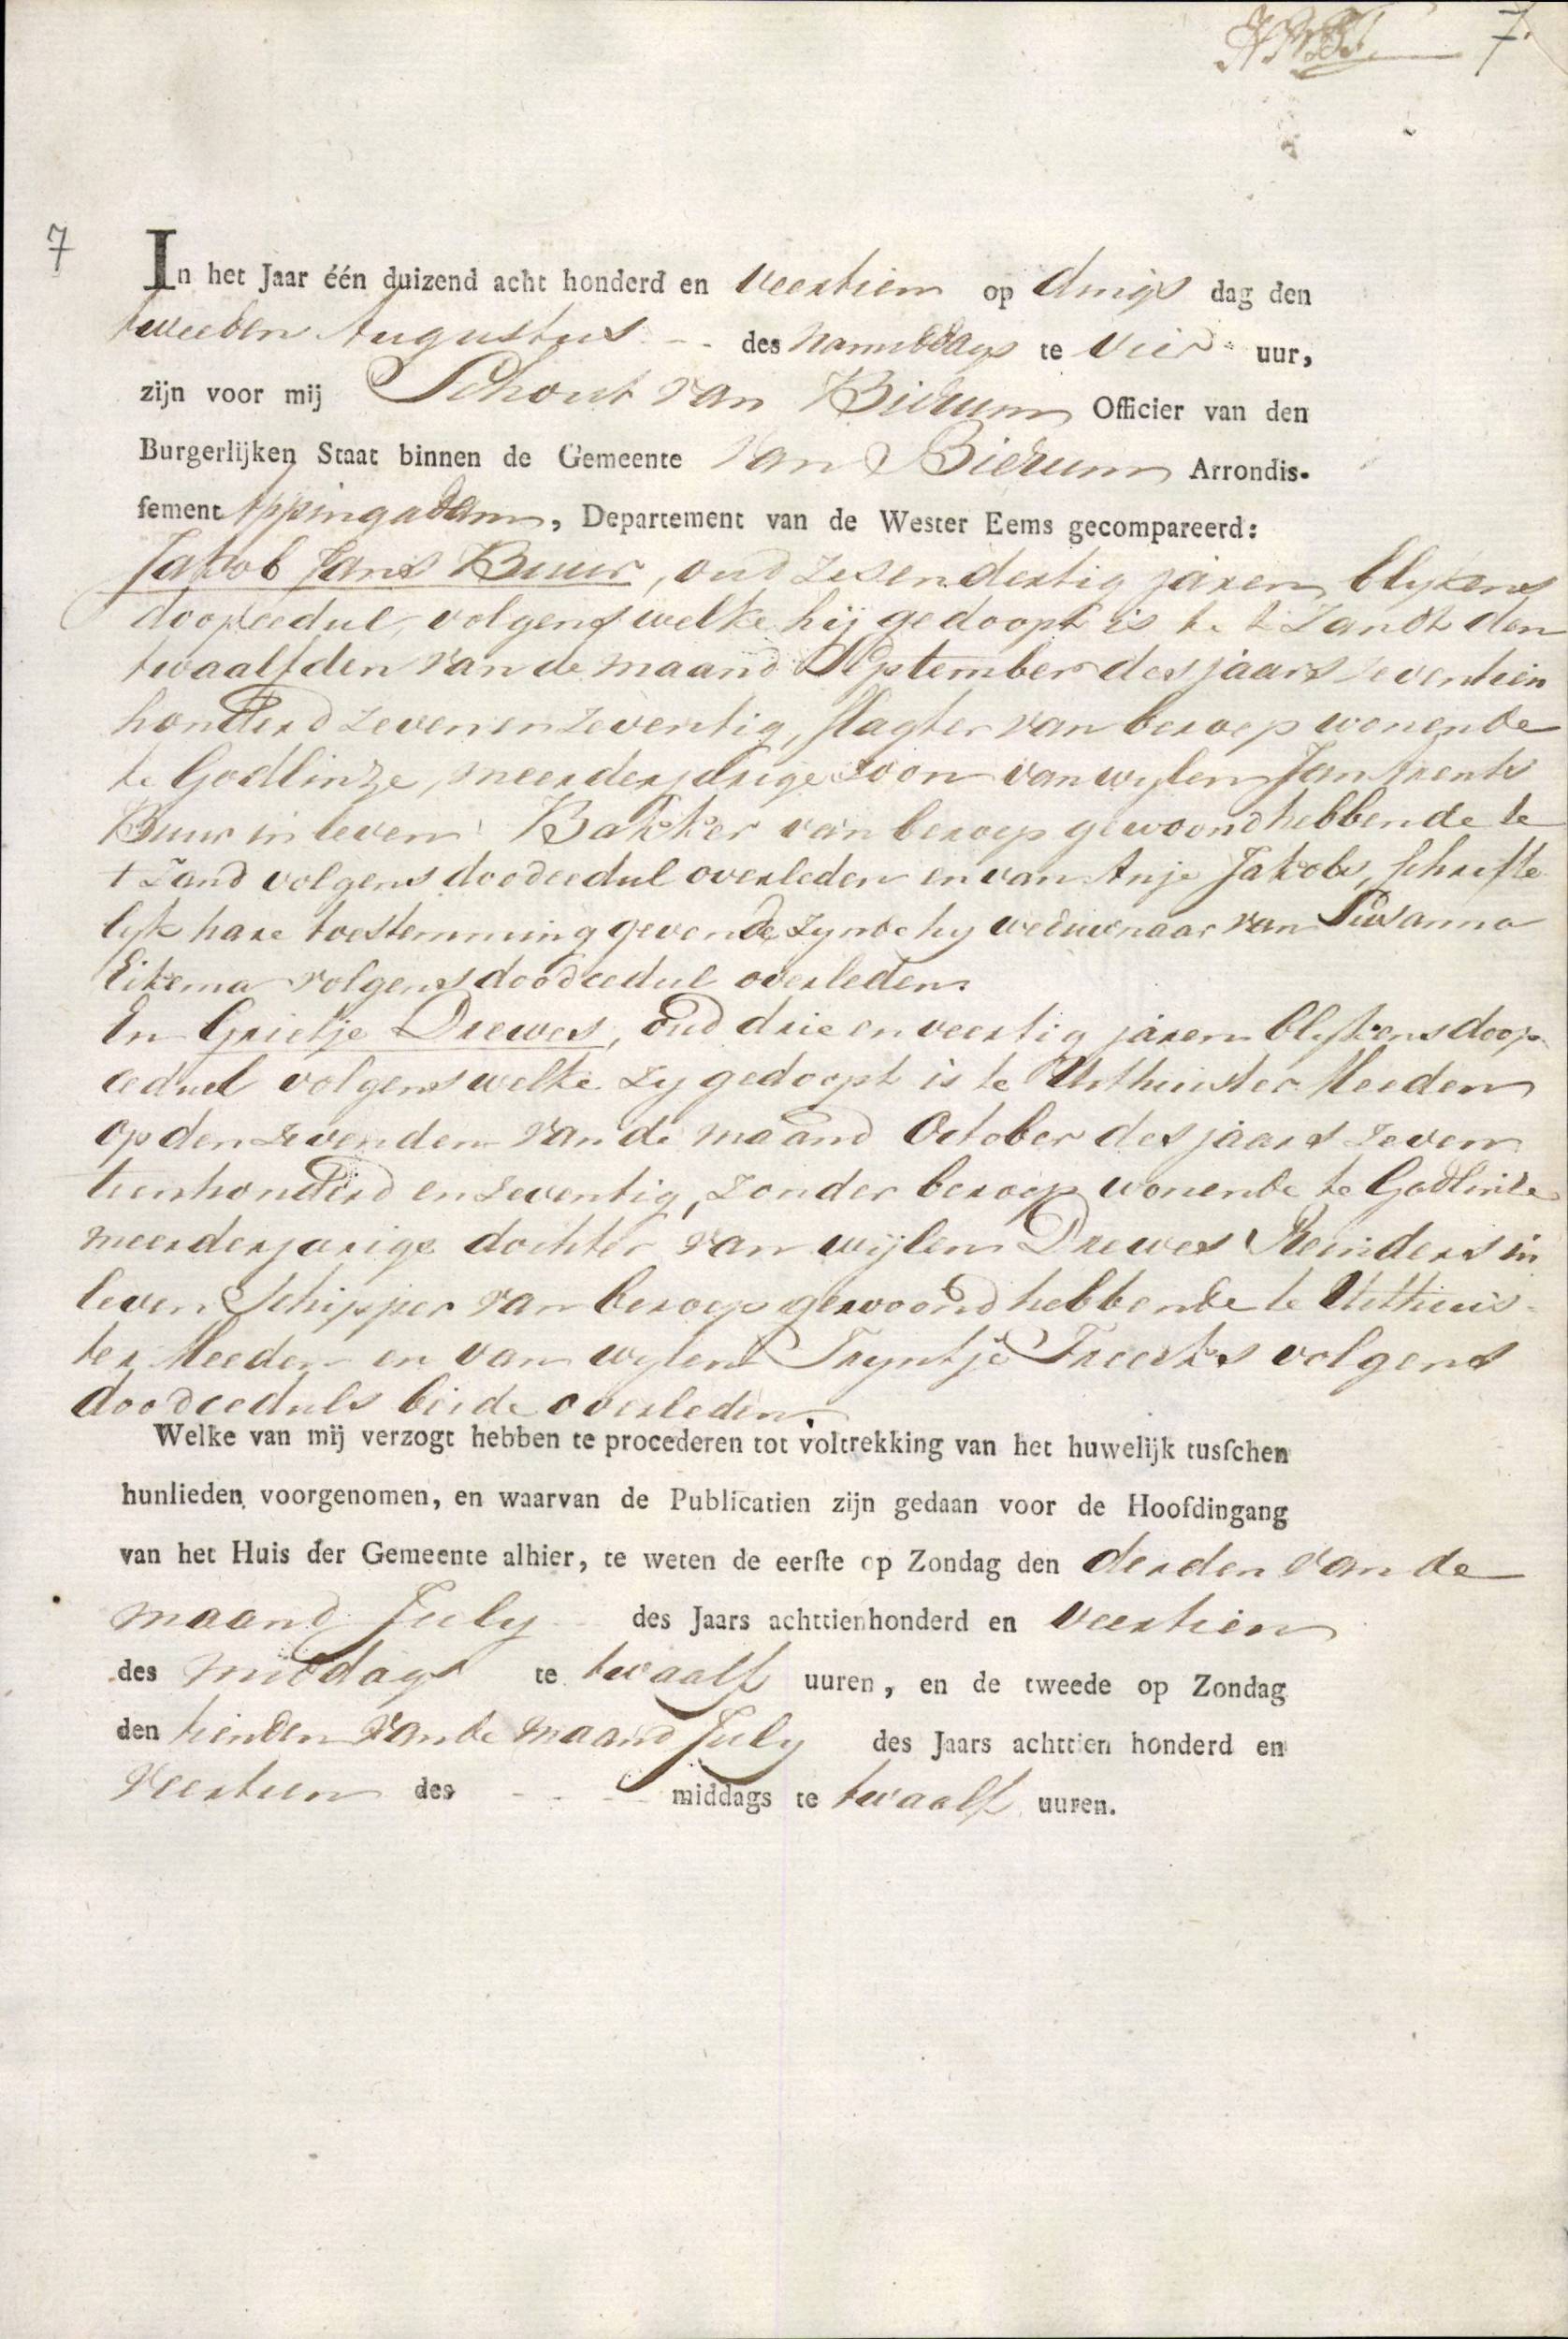 7.
7
In het Jaar één duizend acht honderd en veertien op dings dag den
tweeden Augustus - - des namiddags te vier uur,
zijn voor mij Schout van Bierum Officier van den
Burgerlijken Staat binnen de Gemeente van Bierum Arrondis-
sement Appingadam, Departement van de Wester Eems gecompareerd:
Jakob Jans Buur, oud zesendertig jaren, blykens
doopceedul, volgens welke hij gedoopt is te 't Zandt den
twaalfden van de maand September des jaars seventien
honderd zevenenzeventig, slagter van beroep wonende
te Godlinze, meerderjarige zoon van wylen Jan Arents
Buur in leven Bakker van beroep gewoond hebbende te
t Zand volgens doodcedul overleden en van Anje Jakobs, schrifte
lyk hare toestemming gevende, zynde hy weduwnaar van Susanna
Eikema volgens doodcedul overleden.
En Grietje Drewes, oud drie en veertig jaren blykens doop-
cedul volgens welke zy gedoopt is te Uithuister Meeden
op den zevenden van de maand October des jaars zeven
tienhonderd en zeventig, zonder beroep wonende te Godlinze
meerderjarige dochter van wijlen Drewes Reinders in
leven Schipper van beroep gewoond hebbende te Uithuis-
ter Meeden en van wylen Tryntje Freerks volgens
doodceduls beide overleden.
Welke van mij verzogt hebben te procederen tot voltrekking van het huwelijk tusschen
hunlieden voorgenomen, en waarvan de Publicatien zijn gedaan voor de Hoofdingang
van het Huis der Gemeente alhier, te weten de eerste op Zondag den derden van de
maand July des Jaars achttienhonderd en veertien
des middags te twaalf uuren, en de tweede op Zondag
den tienden van de maand July des Jaars achttien honderd en
veertien des - - - - middags te twaalf uuren.